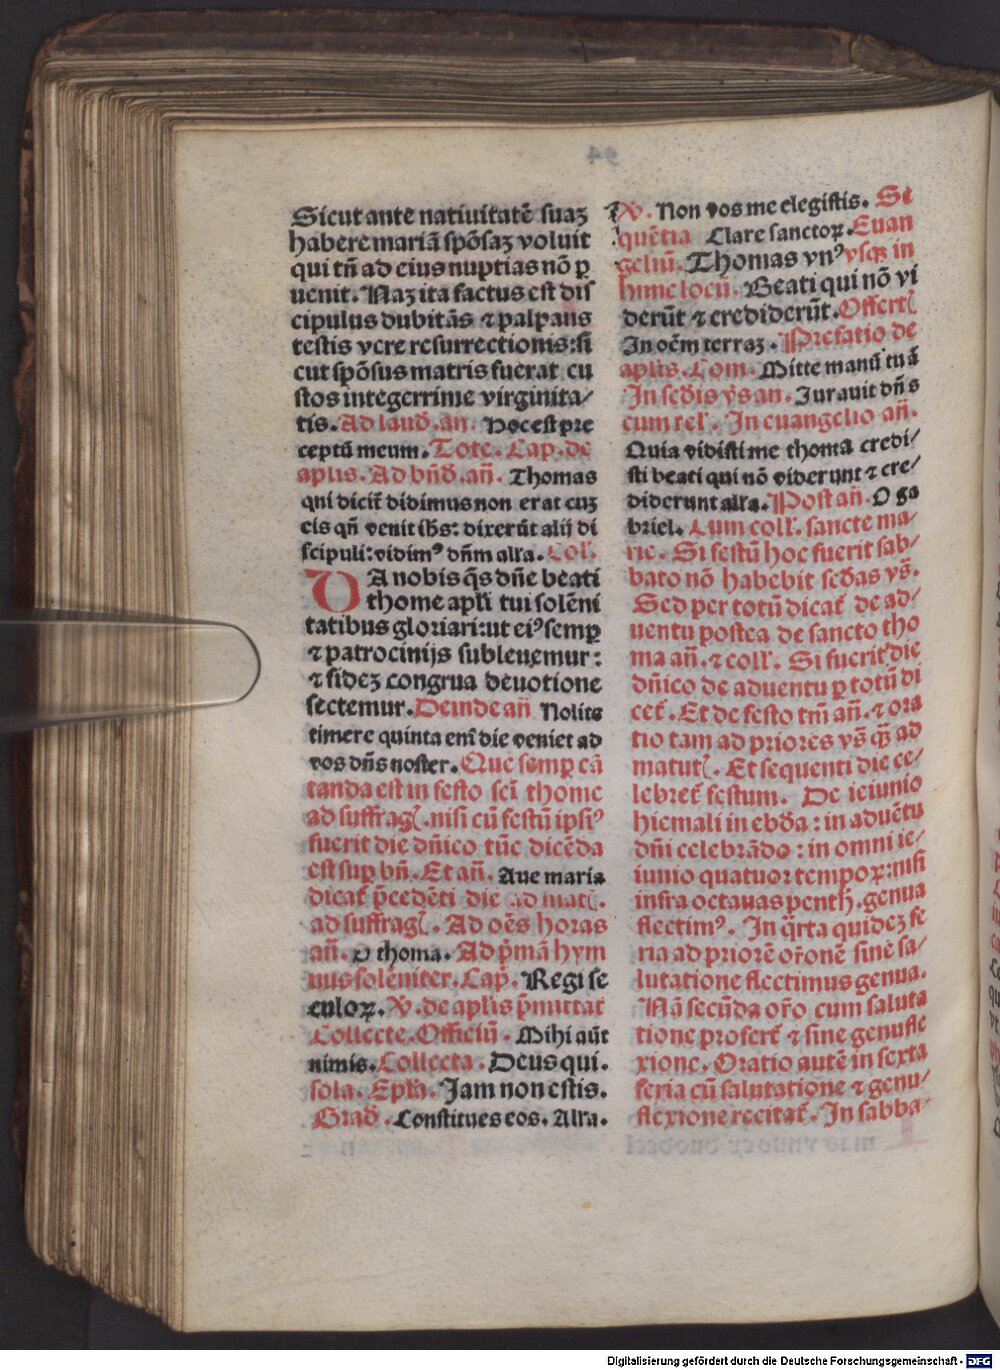 94
Sicut ante natiuitatē suaꝫ
habere mariā spōsaꝫ voluit
qui tñ ad eius nuptias nō ꝑ
uenit. Naꝫ ita factus est dis
cipulus dubitās ⁊ palpans
testis vere resurrectionis: si
cut spōsus matris fuerat cu
stos integerrime virginita/
tis. Ad laud̄. an. Hoc est pre
ceptū meum. Tote. Cap. de
aplis. Ad bñd̄. añ. Thomas
qui dicit̄ didimus non erat cuꝫ
eis qñ venit ih̄s: dixerūt alij di
scipuli: vidimꝰ dñm alľa. Col.
DA nobis q̄s dñe beati
thome apľi tui solēni
tatibus gloriari: ut eiꝰ semꝑ
⁊ patrocinijs subleuemur:
⁊ fideꝫ congrua deuotione
sectemur. Deinde añ Nolite
timere quinta eni̅ die veniet ad
vos dñs noster. Que semꝑ cā
tanda est in festo sci̅ thome
ad suffraḡ. nisi cū festū ipsiꝰ
fuerit die dñico tūc dicēda
est suꝑ bñ. Et añ. Aue maria
dicat̄ p̄cedēti die ad mat̄.
ad suffraḡ. Ad oēs horas
añ. O thoma. Ad p̄mā hym
nus solēniter. Cap̄. Regi se
culoꝝ. V. de aplis p̄mittat̄
Collecte. Officiū. Mihi aūt
nimis. Collecta. Deus qui.
sola. Epľa. Jam non estis.
Grad̄. Constitues eos. Alľa.
V. Non vos me elegistis. Se
quētia Clare sanctoꝝ. Euan
geliū. Thomas vnꝰ vsqꝫ in
hunc locū. Beati qui nō vi
derūt ⁊ crediderūt. Offert̄
In oēm terraꝫ. Prefatio de
aplis. Com. Mitte manū tuā
In sedis vs̄ an. Jurauit dñs
cum rel̄. In euangelio añ.
Quia vidisti me thoma credi/
sti beati qui nō viderunt ⁊ cre/
diderunt alľa. Post añ. O ga
briel. Cum coll̄. sancte ma/
rie. Si festū hoc fuerit sab/
bato nō habebit sedas vs̄.
Sed per totū dicat̄ de ad/
uentu postea de sancto tho
ma añ. ⁊ coll̄. Si fuerit die
dñico de aduentu ꝑ totū di
cet̄. Et de festo tm̄ añ. ⁊ ora
tio tam ad priores vs̄ qꝫ ad
matut̄. Et sequenti die ce/
lebret̄ festum. De ieiunio
hiemali in ebd̄a: in aduētu
dñi celebrādo: in omni ie/
iunio quatuor tempoꝝ: nisi
infra octauas penth̄. genua
flectimꝰ. In q̄rta quideꝫ fe
ria ad priorē or̄onē sine sa/
lutatione flectimus genua.
Nā secūda or̄o cum saluta
tione profert̄ ⁊ sine genufle
xione. Oratio autē in sexta
feria cū salutatione ⁊ genu/
flexione recitat̄. In sabba/
Digitalisierung gefördert durch die Deutsche Forschungsgemeinschaft - DFG